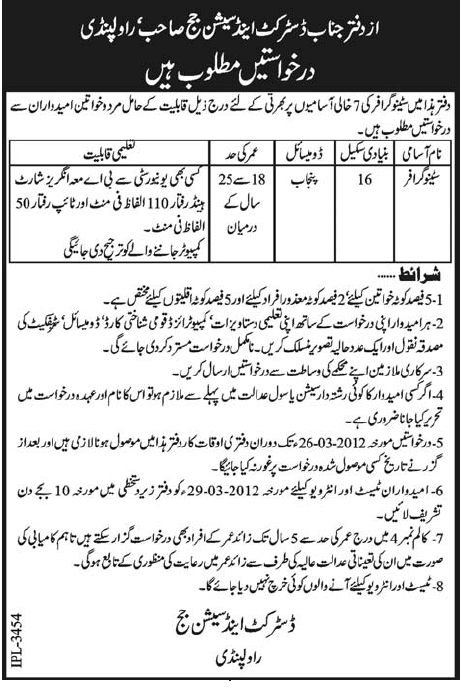 از دفتر جناب ڈسٹرکٹ اینڈ سیشن جج صاحب، راولپنڈی
درخواستیں مطلوب ہیں
دفتر ہذا میں سٹینوگرافر کی 7 خالی آسامیوں پر بھرتی کے لئے درج ذیل قابلیت کے حامل مرد و خواتین امیدواران سے
درخواستیں مطلوب ہیں۔
نام آسامی بنیادی سکیل ڈومیسائل عمر کی حد تعلیمی قابلیت
سٹینوگرافر 16 پنجاب 18 سے 25 کسی بھی یونیورسٹی سے بی اے معہ انگریز شارٹ
سال کے ہینڈ رفتار 110 الفاظ فی منٹ اور ٹائپ رفتار 50
درمیان الفاظ فی منٹ۔
کمپیوٹر جاننے والے کو ترجیح دی جائیگی
شرائط ......
1- 5 فیصد کوٹہ خواتین کیلئے، 2 فیصد کوٹہ معذور افراد کیلئے اور 5 فیصد کوٹہ اقلیتوں کیلئے مختص ہے۔
2- ہر امیدوار اپنی درخواست کے ساتھ اپنی تعلیمی دستاویزات، کمپیوٹرائزڈ قومی شناختی کارڈ، ڈومیسائل، سرٹیفکیٹ کی
مصدقہ نقول اور ایک عدد حالیہ تصویر منسلک کریں۔ نامکمل درخواست مسترد کر دی جائے گی۔
3- سرکاری ملازمین اپنے محکمے کی وساطت سے درخواستیں ارسال کریں۔
4- اگر کسی امیدوار کا کوئی رشتہ دار سیشن یا سول عدالت میں پہلے سے ملازم ہو تو اس کا نام اور عہدہ درخواست میں
تحریر کیا جانا ضروری ہے۔
5- درخواستیں مورخہ 26-03-2012 تک دوران دفتری اوقات کار دفتر ہذا میں موصول ہونا لازمی ہیں اور بعد از
گزرنے تاریخ کسی موصول شدہ درخواست پر غور نہ کیا جائیگا۔
6- امیدواران ٹیسٹ اور انٹرویو کیلئے مورخہ 29-03-2012 کو دفتر زیر دستخطی میں مورخہ 10 بجے دن
تشریف لائیں۔
7- کالم نمبر 4 میں درج عمر کی حد سے 5 سال تک زائد عمر کے افراد بھی درخواست گزار سکتے ہیں تاہم کامیابی کی
صورت میں ان کی تعیناتی عدالت عالیہ کی طرف سے زائد عمر میں رعایت کی منظوری کے تابع ہوگی۔
8- ٹیسٹ اور انٹرویو کیلئے آنے والوں کوئی خرچ نہیں دیا جائے گا۔
ڈسٹرکٹ اینڈ سیشن جج
راولپنڈی
IPL-3454